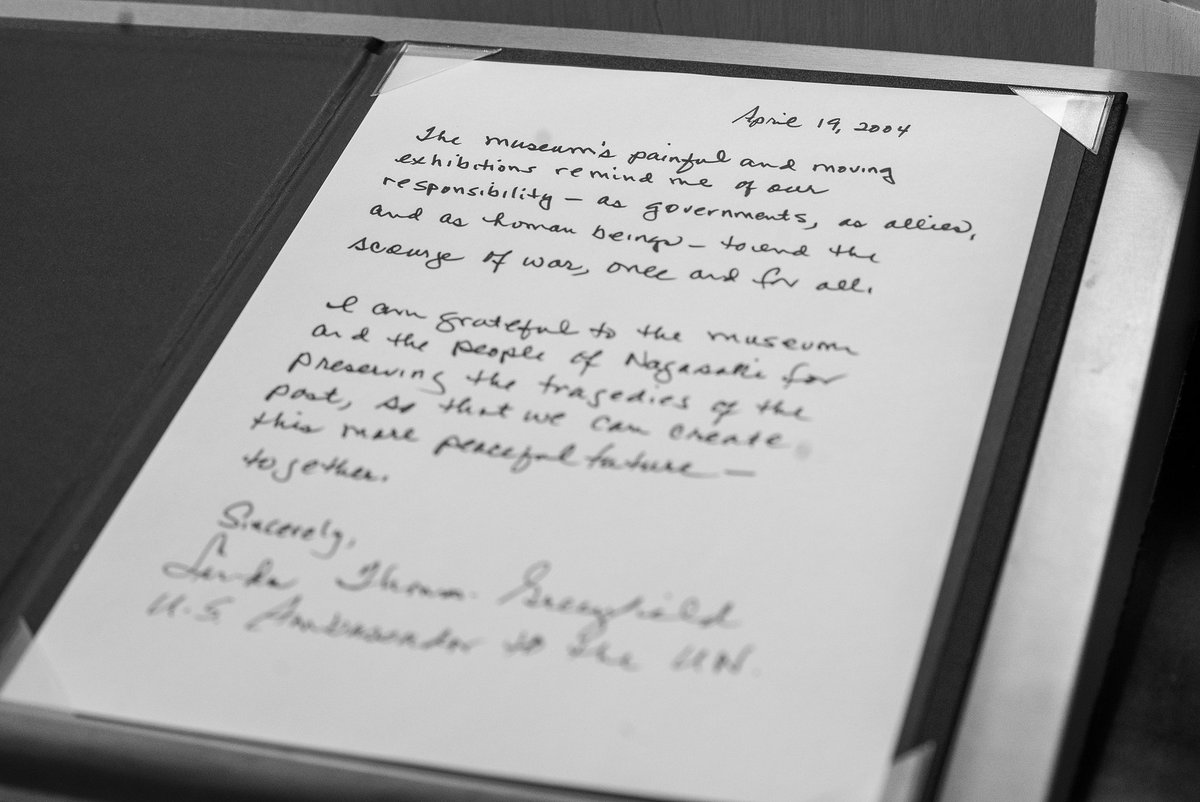 April 19, 2004
The museum's painful and moving
exhibitions remind me of our
responsibility – as governments, as allies,
and as human beings – to end the
scourge of war, once and for all.
I am grateful to the museum
and the people of Nagasaki for
preserving the tragedies of the
past, so that we can create
this more peaceful future –
together.
Sincerely,
Linda Thomas-Greenfield
U.S. Ambassador to the U.N.